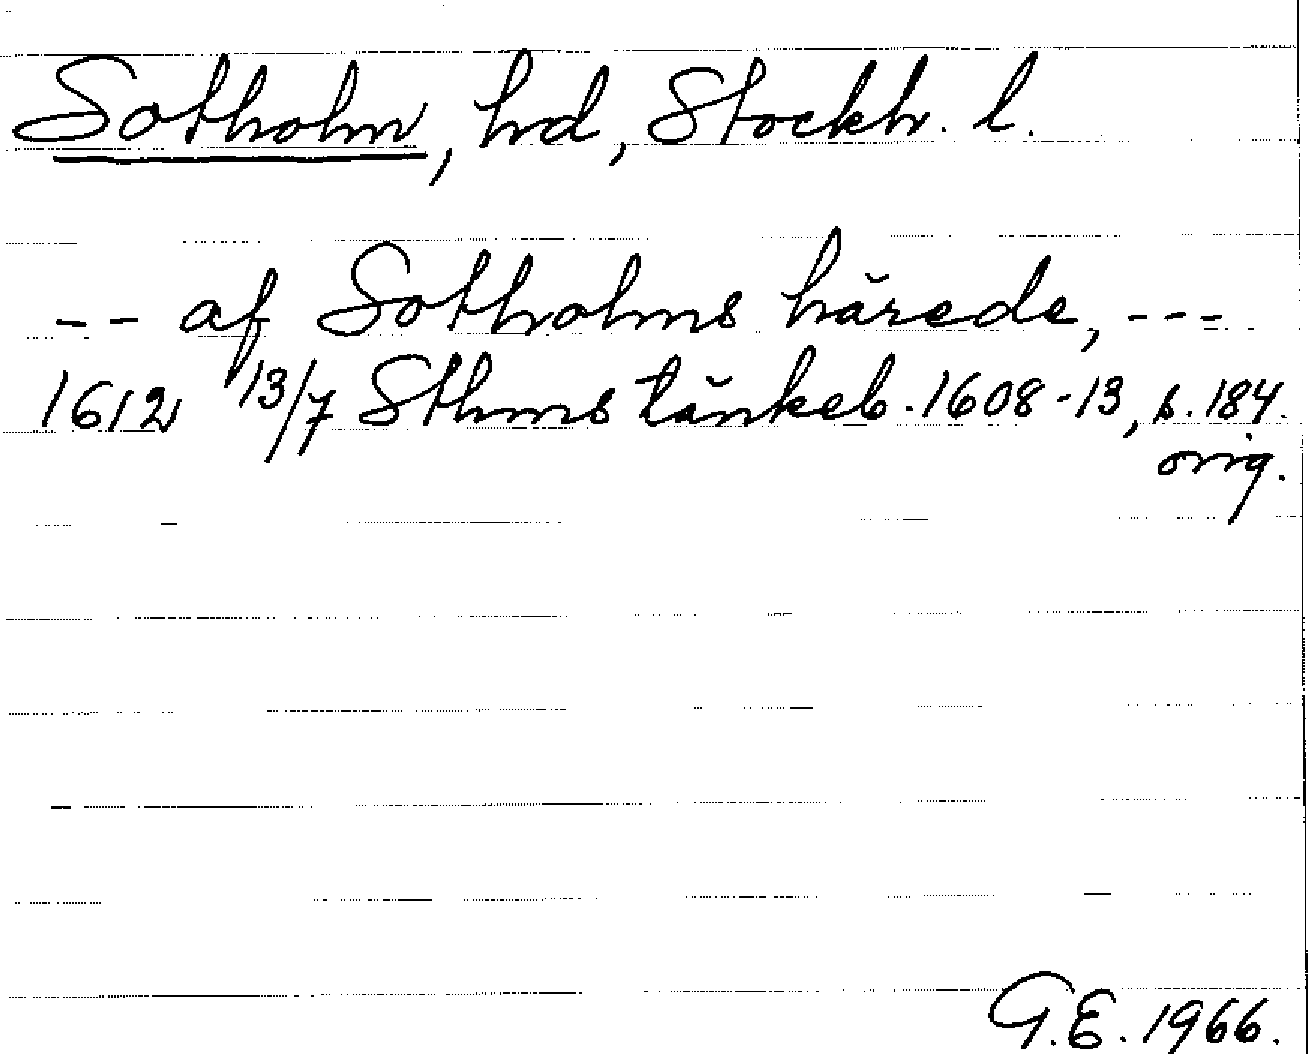 Sotholm, hd, Stockh. l.
-- af Sotholms härede, ---
1612 13/7 Sthms tänkeb. 1608-13, s. 184.
orig.
G.E. 1966.